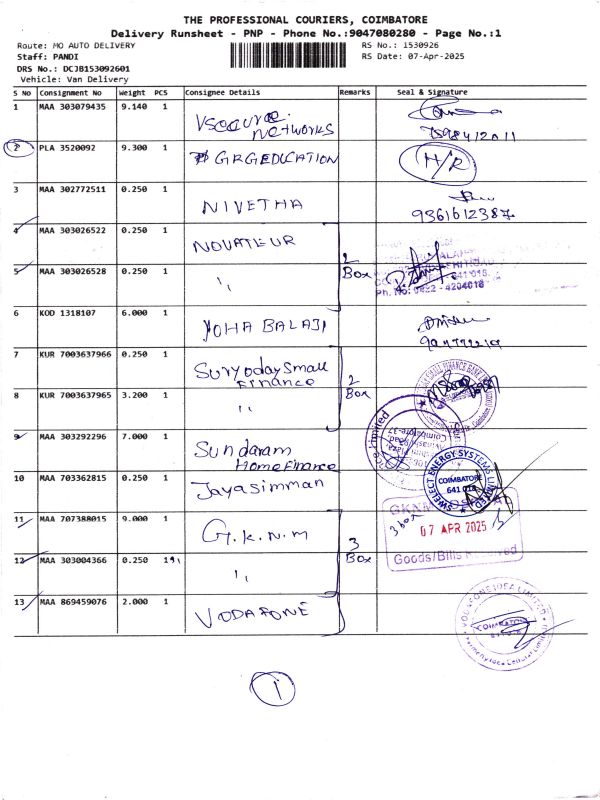 THE PROFESSIONAL COURIERS, COIMBATORE
Delivery Runsheet - PNP - Phone No.:9047080280 - Page No.:1
Route: MO AUTO DELIVERY
RS No.: 1530926
Staff: PANDI
RS Date: 07-Apr-2025
DRS No.: DCJB153092601
Vehicle: Van Delivery
S No Consignment No Weight PCS Consignee Details Remarks Seal & Signature
1 MAA 303079435 9.140 1 Vsecure networks
7598412011
2 PLA 3520092 9.300 1 GRGEDUCATION H/R
3 MAA 302772511 0.250 1 NIVETHA
9361612387
4 MAA 303026522 0.250 1 NOVATEUR
2 Box
5 MAA 303026528 0.250 1 ,,
641 018.
Ph. No: 0422 - 4204018
6 KOD 1318107 6.000 1 YOHA BALAJI
7 KUR 7003637966 0.250 1 Suryoday Small Finance
2 Box
8 KUR 7003637965 3.200 1 ,,
9 MAA 303292296 7.000 1 Sundaram Home Finance
10 MAA 703362815 0.250 1 Jayasimman
SWELECT ENERGY SYSTEMS LIMITED
COIMBATORE
641 018
11 MAA 707388015 9.000 1 G.K.N.M
3 Box
3 box
07 APR 2025
Goods/Bills Received
12 MAA 303004366 0.250 191 ,,
13 MAA 869459076 2.000 1 VODAFONE
VODAFONE IDEA LIMITED
COIMBATORE
Formerly Idea Cellular Limited
1